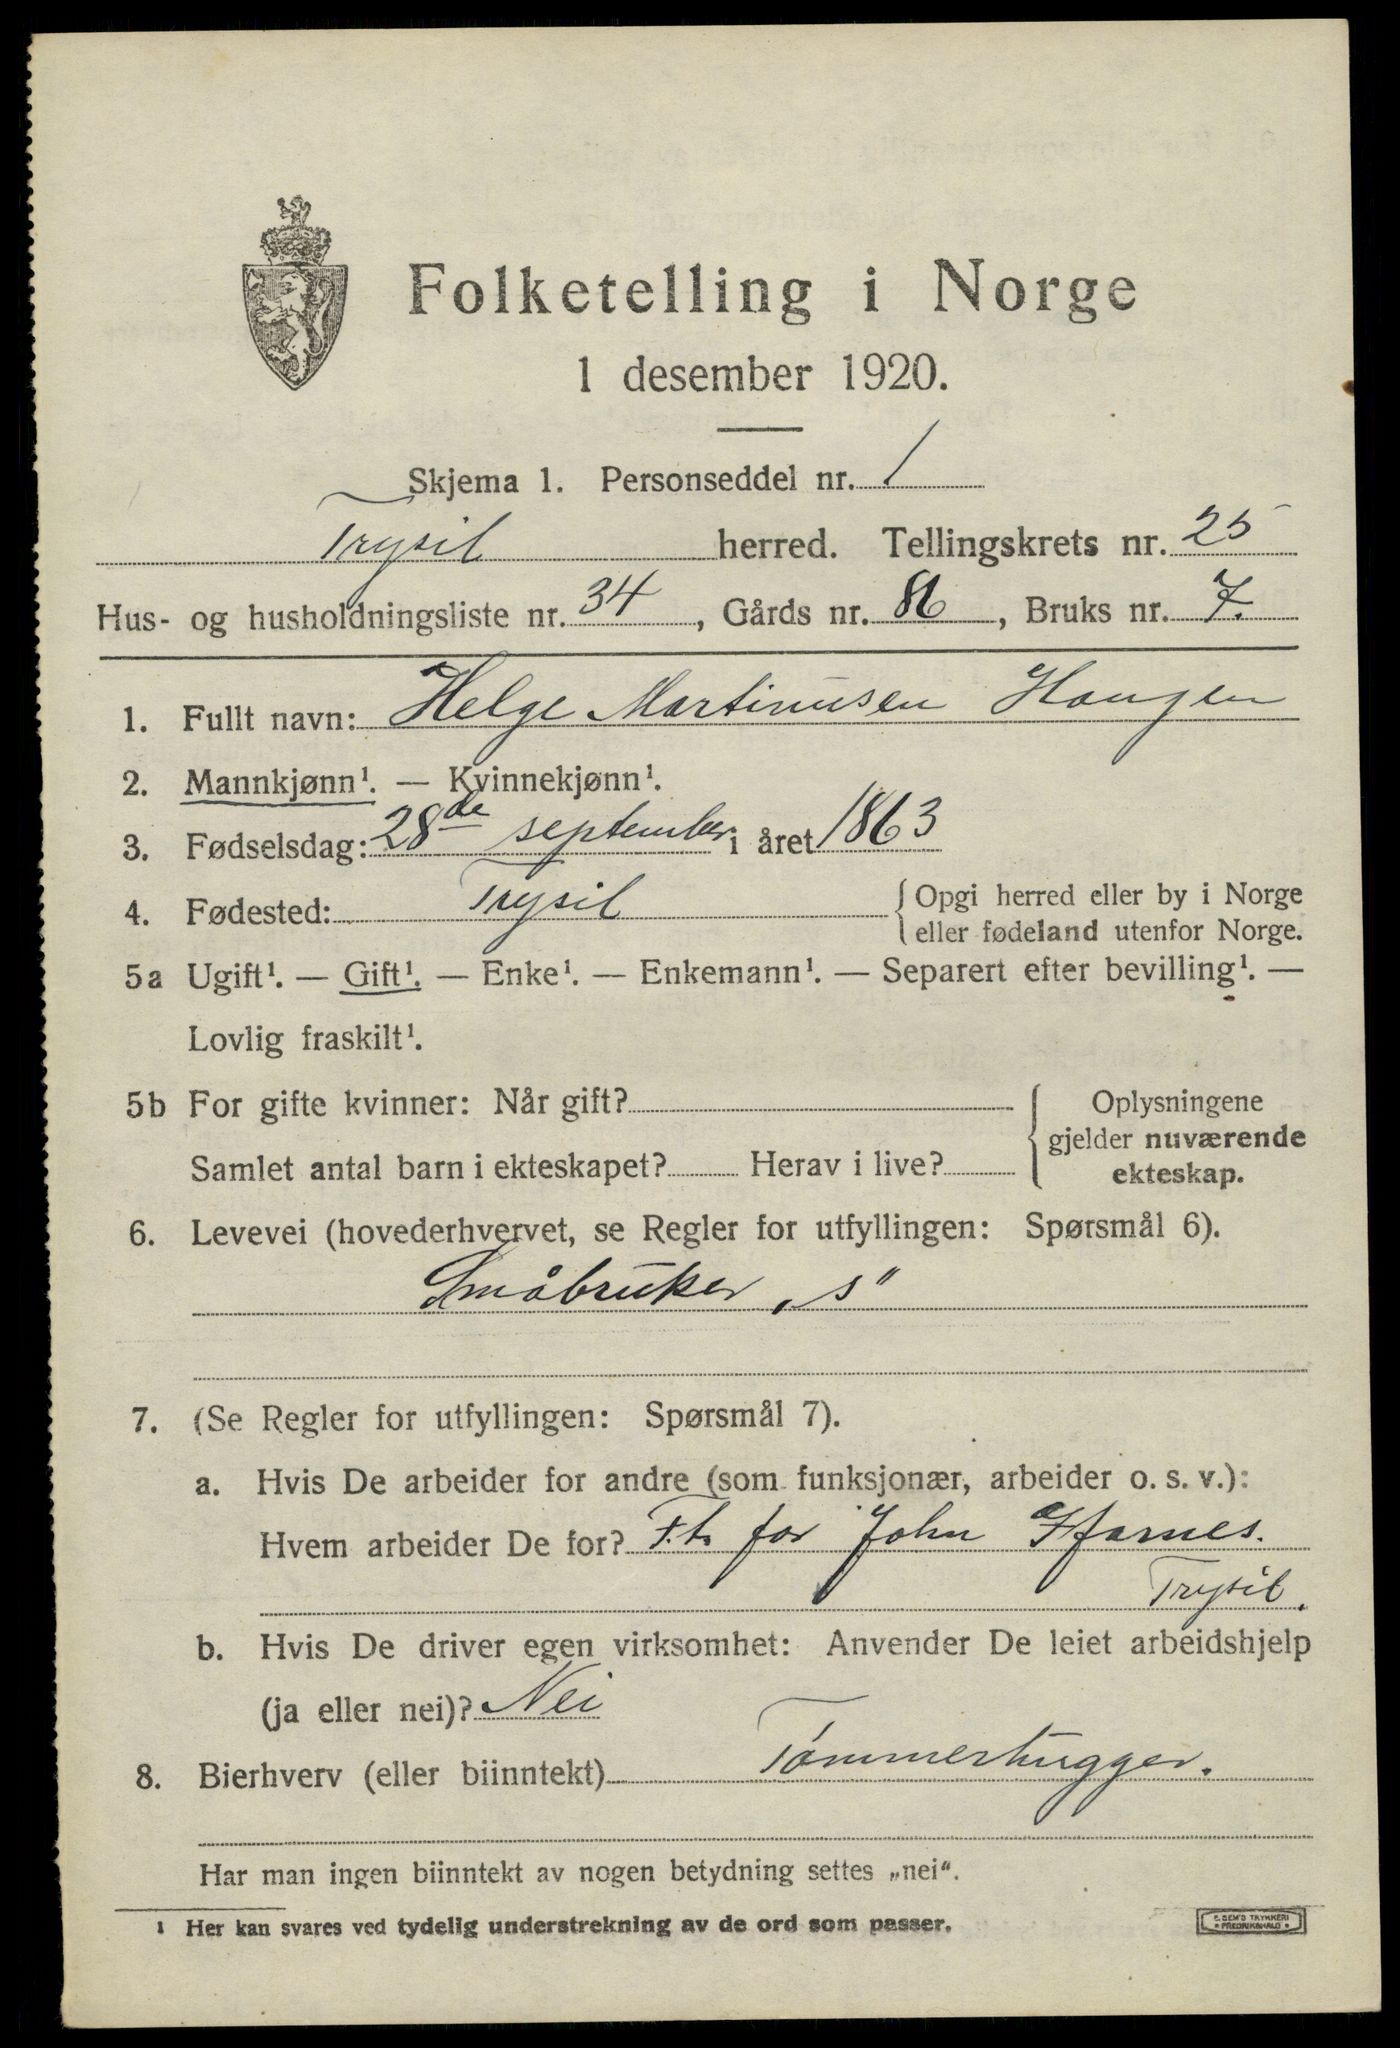 Folketelling i Norge
1 desember 1920.
Skjema 1. Personseddel nr. 1
Trysil herred. Tellingskrets nr. 25
Hus- og husholdningsliste nr. 34, Gårds nr. 86, Bruks nr. 7.
1. Fullt navn: Helge Martinusen Haugen
2. Mannkjønn¹. — Kvinnekjønn¹.
3. Fødselsdag: 28de september i året 1863
4. Fødested: Trysil { Opgi herred eller by i Norge
eller fødeland utenfor Norge.
5a Ugift¹. — Gift¹. — Enke¹. — Enkemann¹. — Separert efter bevilling¹. —
Lovlig fraskilt¹.
5b For gifte kvinner: Når gift?
Samlet antal barn i ekteskapet? Herav i live?
{ Oplysningene
gjelder nuværende
ekteskap.
6. Levevei (hovederhvervet, se Regler for utfyllingen: Spørsmål 6).
Småbruker „s"
7. (Se Regler for utfyllingen: Spørsmål 7).
a. Hvis De arbeider for andre (som funksjonær, arbeider o. s. v.):
Hvem arbeider De for? F.t. for John
Trysil.
b. Hvis De driver egen virksomhet: Anvender De leiet arbeidshjelp
(ja eller nei)? Nei
8. Bierhverv (eller biinntekt) Tømmerhugger.
Har man ingen biinntekt av nogen betydning settes „nei“.
¹ Her kan svares ved tydelig understrekning av de ord som passer.
E. SEM'S TRYKKERI
FREDRIKSHALD